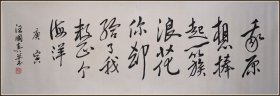 我原
想捧
起一簇
浪花
你却
给了我
整个
海洋
庚寅
汪国真书